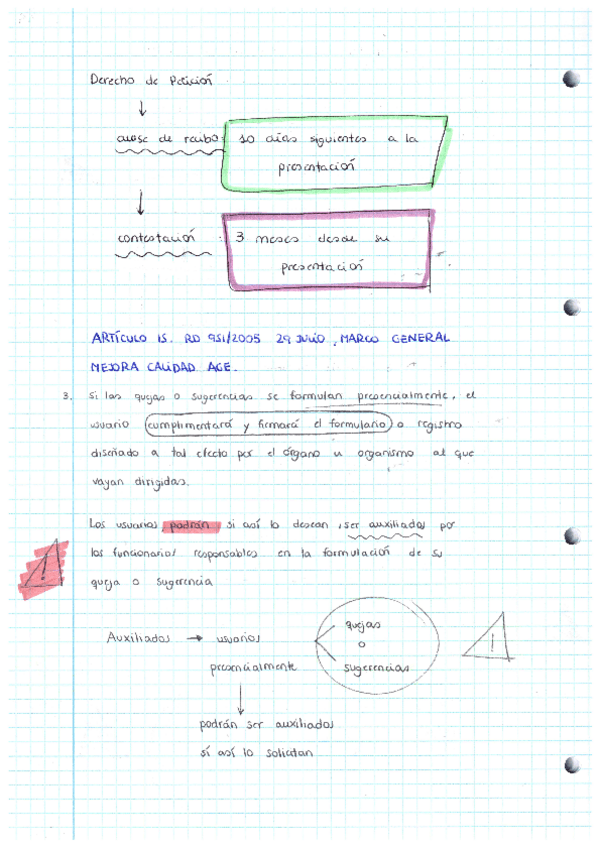 Derecho de Petición
acuse de recibo: 10 días siguientes a la
presentación
contestación : 3 meses desde su
presentación
ARTÍCULO 15. RD 951/2005 29 JULIO, MARCO GENERAL
MEJORA CALIDAD AGE.
3. Si las quejas o sugerencias se formulan presencialmente, el
usuario cumplimentará y firmará el formulario o registro
diseñado a tal efecto por el órgano u organismo al que
vayan dirigidas.
Los usuarios podrán, si así lo desean, ser auxiliados por
los funcionarios responsables en la formulación de su
!
queja o sugerencia
Auxiliados → usuarios
presencialmente
quejas
o
sugerencias
!
podrán ser auxiliados
si así lo solicitan